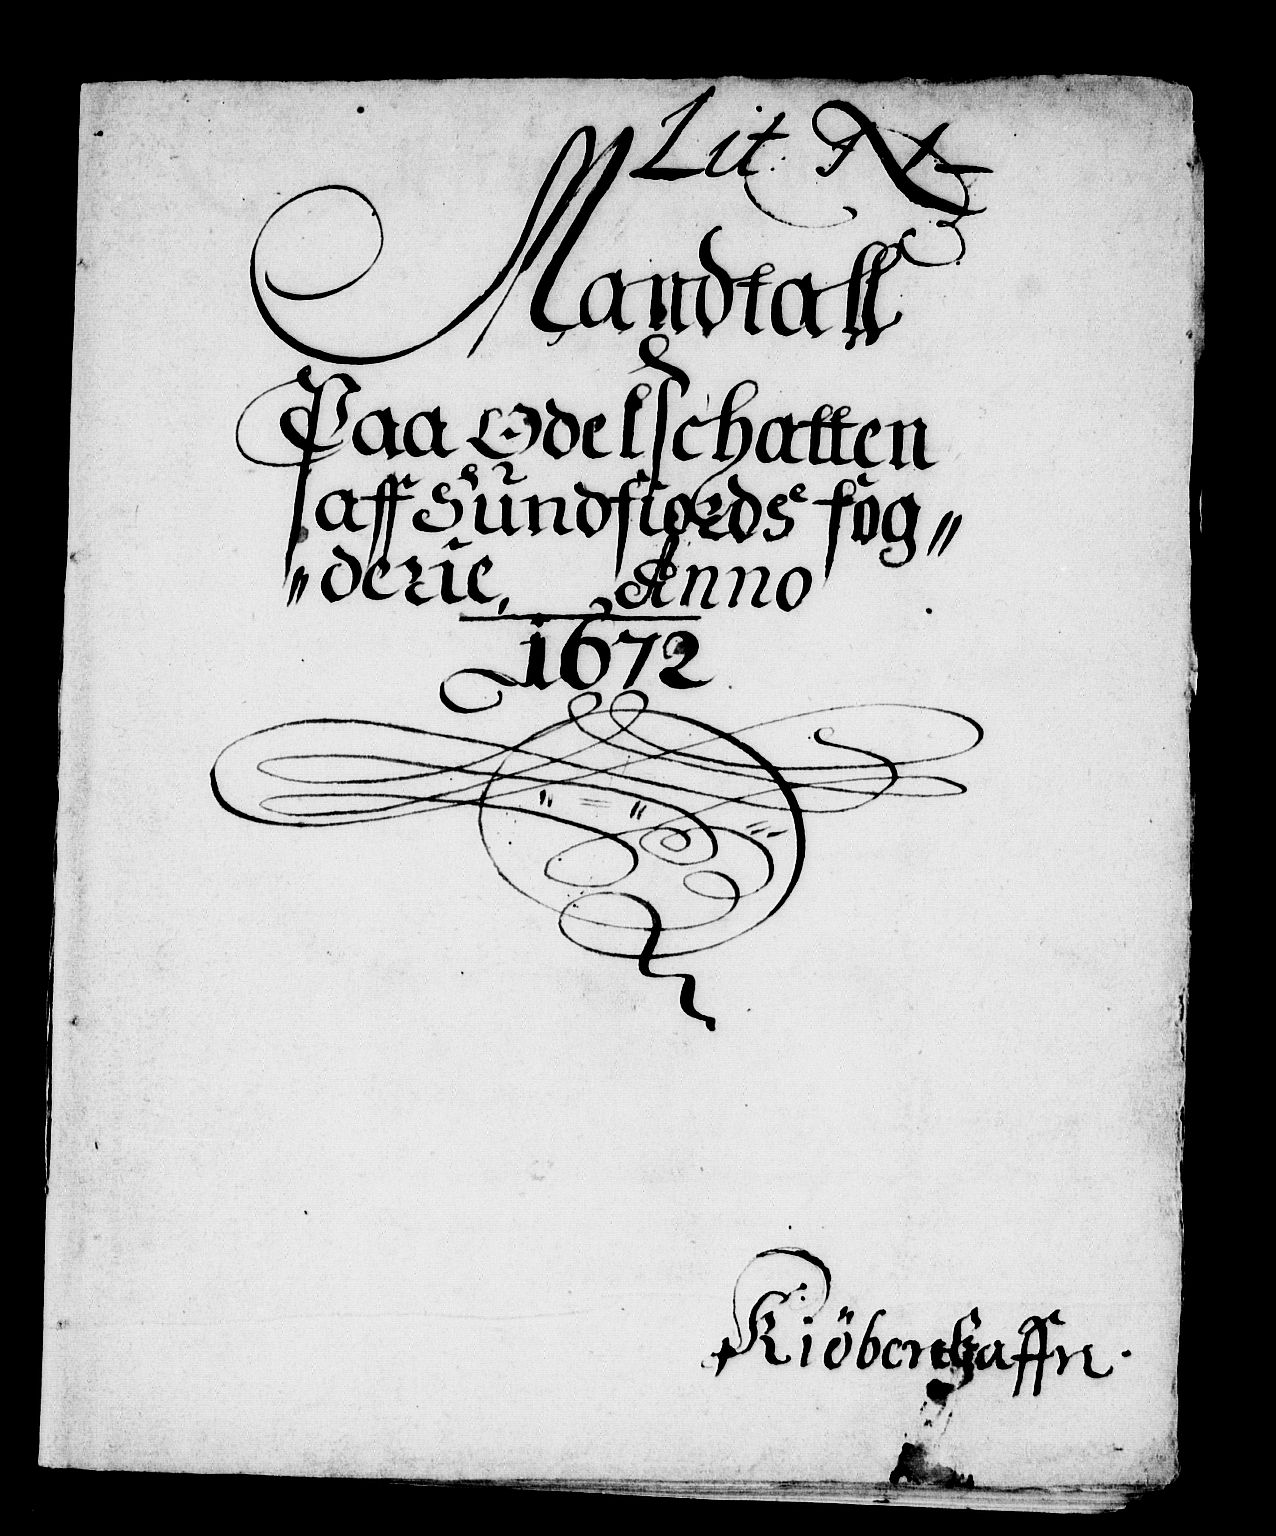 Lit
Mandtall
Paa Odelschatten
aff Sundfiords fog
derie, Anno
1672
Kiöbenhaffn.